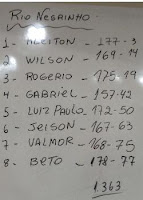 RIO NEGRINHO
1- ALEITON - 177-3
2 WILSON - 169-14
3- ROGERIO - 175-19
4- GABRIEL - 157-42
5- LUIZ PAULO - 172-50
6- JEISON - 167-63
7- VALMOR - 168-75
8- BETO - 178-77
1363